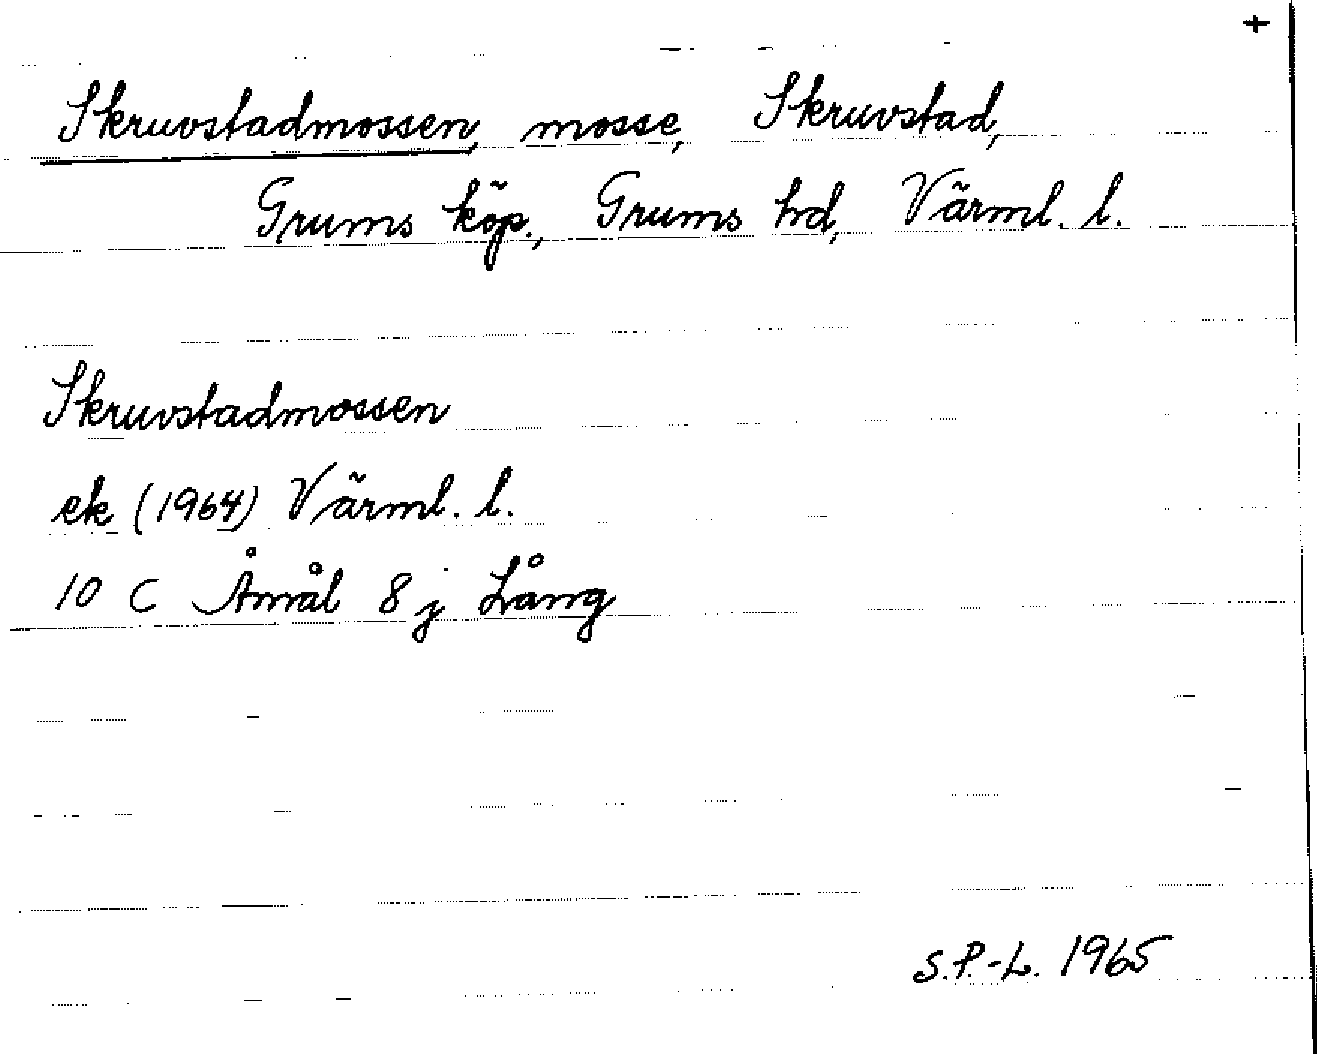 +
Skruvstadmossen, mosse, Skruvstad,
Grums köp., Grums hd, Värml. l.
Skruvstadmossen
ek (1964) Värml. l.
10 C Åmål 8 j Lång
S.P.-L. 1965